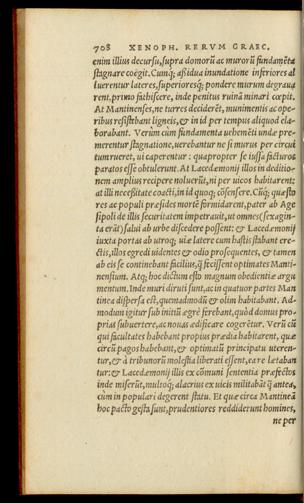 708 XENOPH. RERVM GRAEC.
enim illius decursu, supra domorũ ac murorũ fundamẽta
stagnare coëgit. Cumq; aßidua inundatione inferiores al
luerentur lateres, superioresq; pondere murum degraua
rent, primo fathiscere, inde penitus ruinã minari cœpit.
At Mantinenses, ne turres deciderẽt, munimentis ac ope-
ribus resistebant ligneis, & in id per tempus aliquod ela-
borabant. Verùm cùm fundamenta uehemẽti undæ pre-
merentur stagnatione, uerebantur ne si murus per circui
tum rueret, ui caperentur : quapropter se iussa facturos
paratos esse obtulerunt. At Lacedæmonij illos in deditio-
nem amplius recipere noluerũt, ni per uicos habitarent:
at illi neceßitate coacti, in id quoq; cõsensere. Cũq; quæsto
res ac populi præsides mortẽ formidarent, pater ab Age
sipoli de illis securitatem impetrauit, ut omnes (sexagin-
ta erãt) salui ab urbe discedere possent: & Lacedæmonij
iuxta portas ab utroq; uiæ latere cum hastis stabant ere-
ctis, illos egredi uidentes & odio prosequentes, & tamen
ab eis se continebant facilius, q̃ fecissent optimates Manti-
nensium. Atq; hoc dictum esto magnum obedientiæ argu
mentum. Inde muri diruti sunt, ac in quatuor partes Man
tinea dispersa est, quemadmodũ & olim habitabant. Ad-
modum igitur sub initiũ ægrè ferebant, quòd domus pro-
prias subuertere, ac nouas ædificare cogerẽtur. Verũ cũ
qui facultates habebant propius prædia habitarent, quæ
circũ pagos habebant, & optimatũ principatu uteren-
tur, & à tribunorũ molestia liberati essent, ea re lætaban
tur: & Lacedæmonij illis ex cõmuni sententia præfectos
inde miserũt, multoq; alacrius ex uicis militabãt q̃ antea,
cùm in populari degerent statu. Et quæ circa Mantineã
hoc pacto gesta sunt, prudentiores reddiderunt homines,
ne per